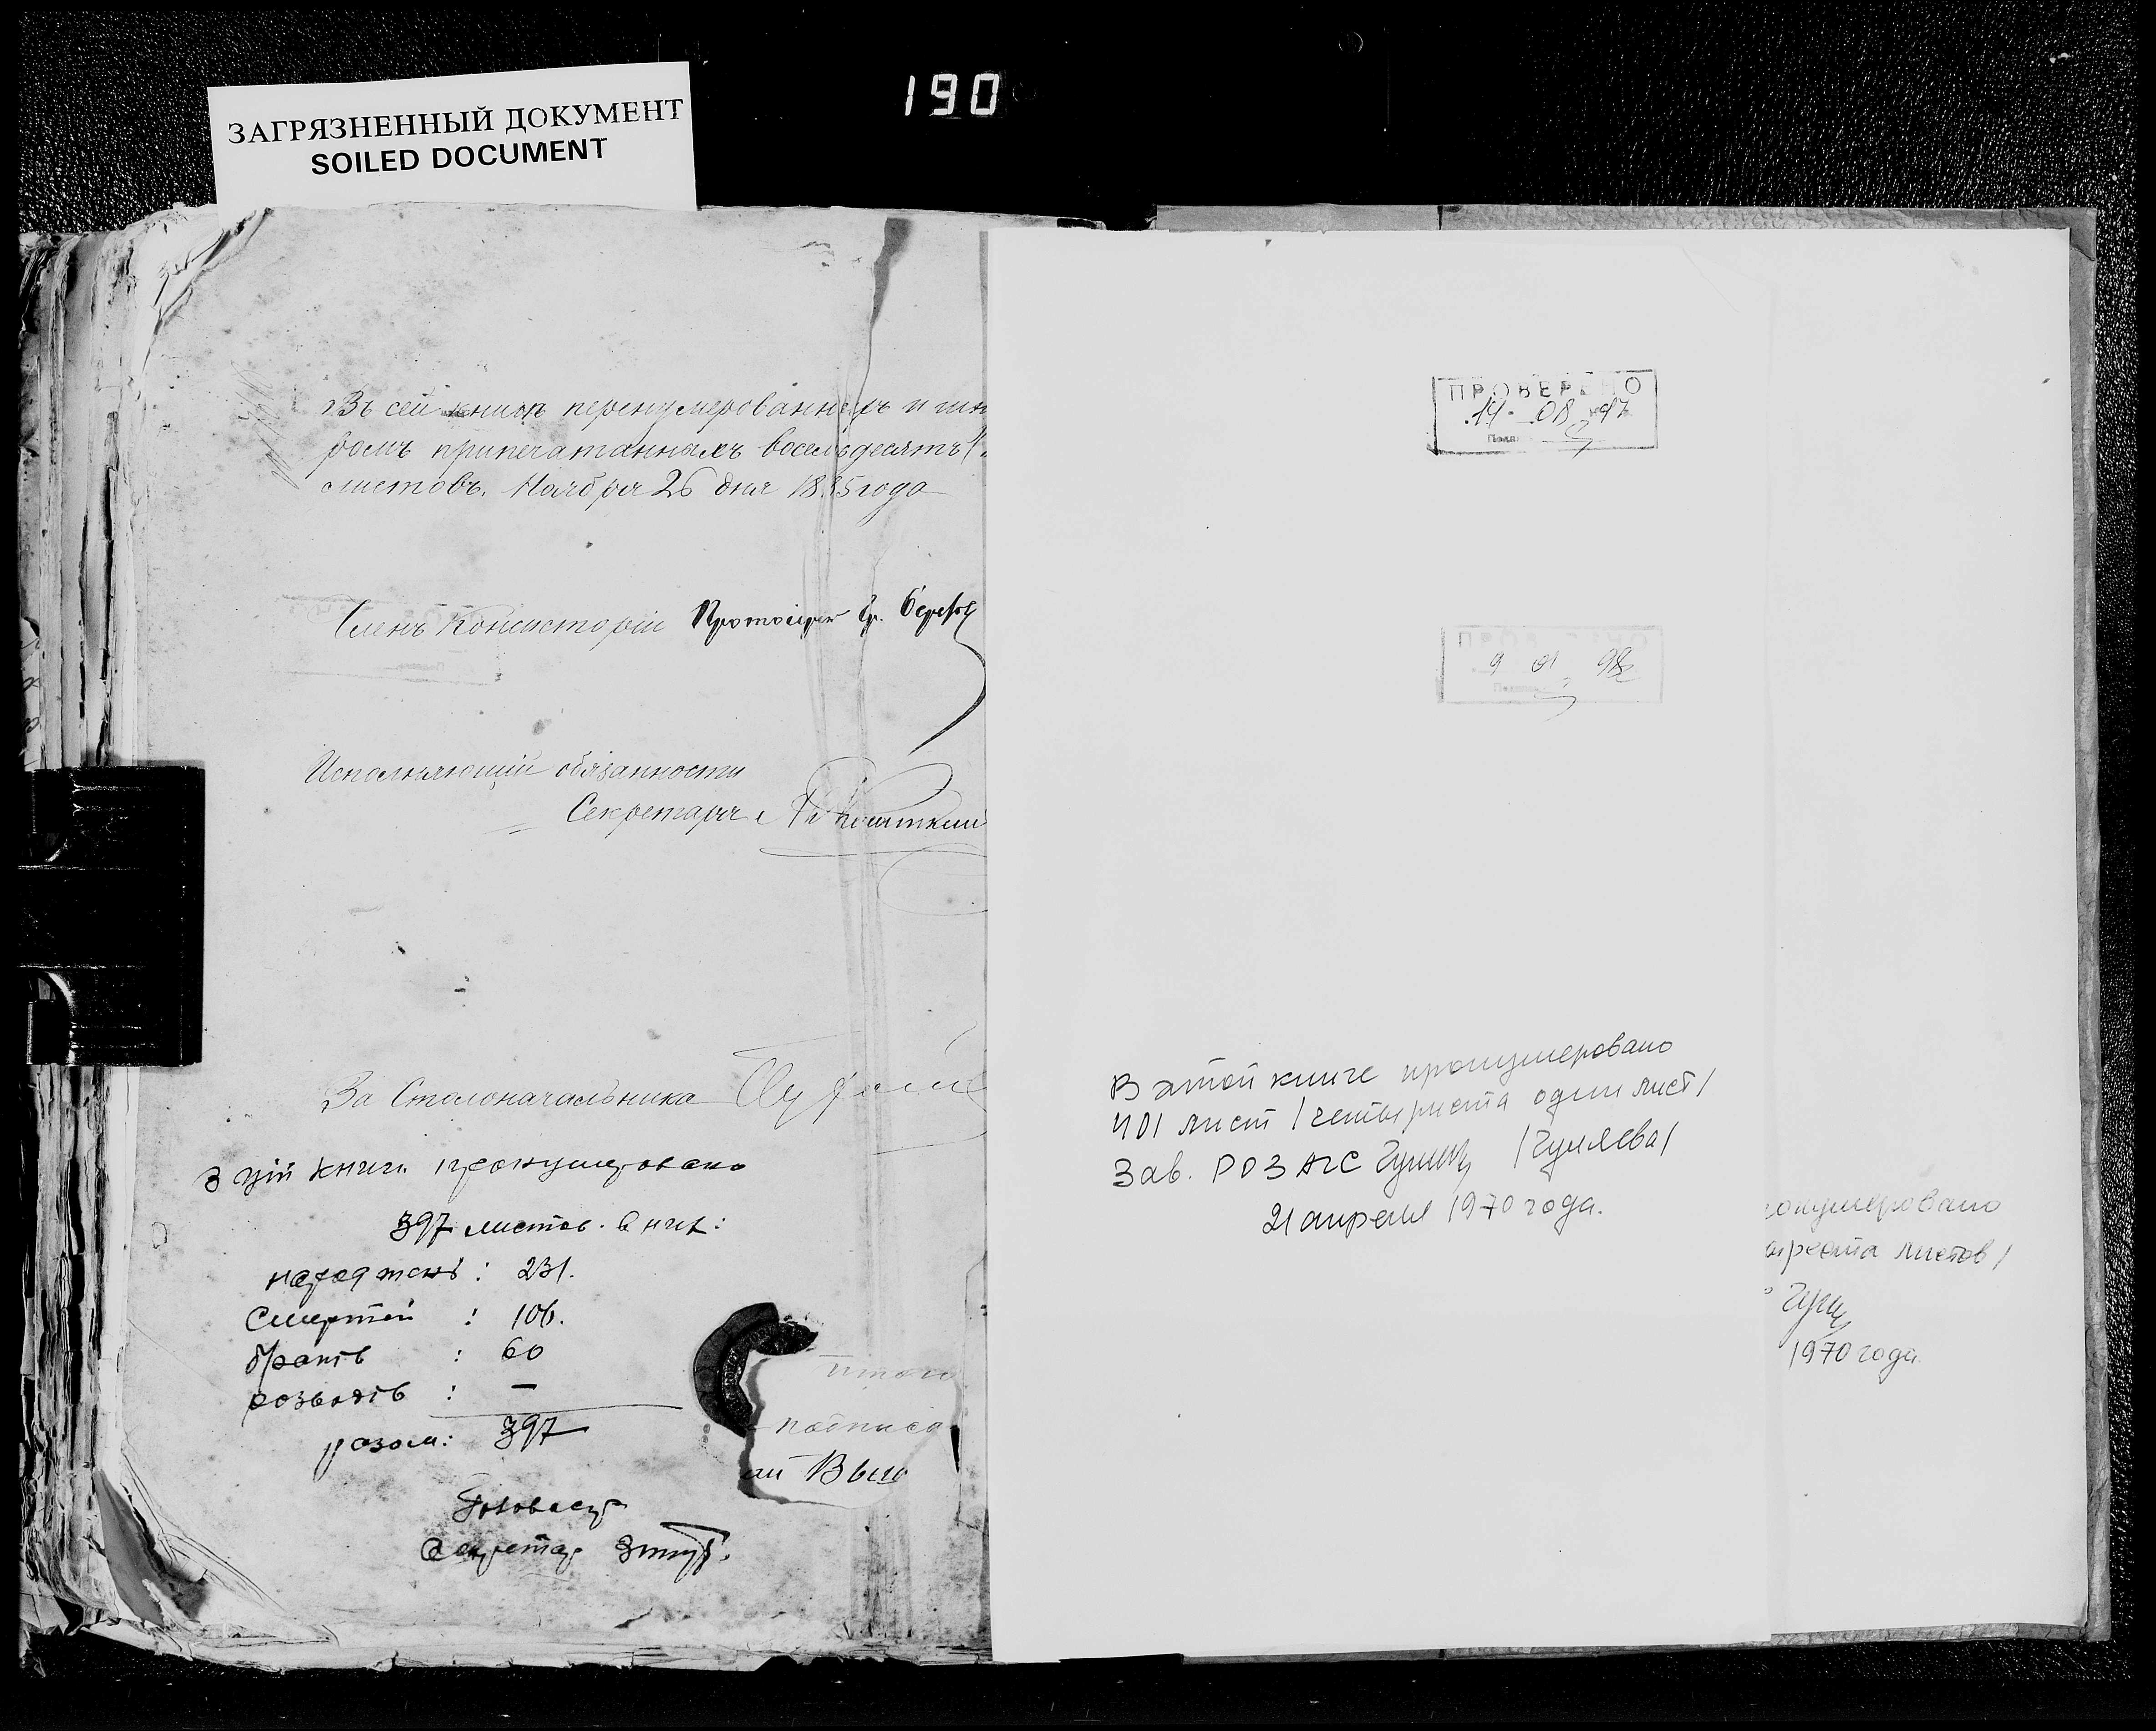 190
ЗАГРЯЗНЕННЫЙ ДОКУМЕНТ
SOILED DOCUMENT
Въ сей книгѣ перенумерованныхъ и шну
ромъ припечатаннымъ восемьдесятъ
листовъ. Ноября 26 дня 1885 года
Членъ Консисторіи Протоіерей Гр.
Исполняющій обязанности
Секретаря
За Столоначальника
В цій книги пронумеровано
397 листов. в них:
народжень: 231.
Смертей : 106.
браків : 60
розводів : —
разом: 397
Голова
Секретар
подписа
ПРОВЕРЕНО
14. 08 97
ПРОВЕРЕНО
9 01 98
В этой книге пронумеровано
401 лист /четыриста один лист/
Зав. РОЗАГС /Гуляева/
21 апреля 1970 года.
онумеровано
ыреста листов/
1970 года